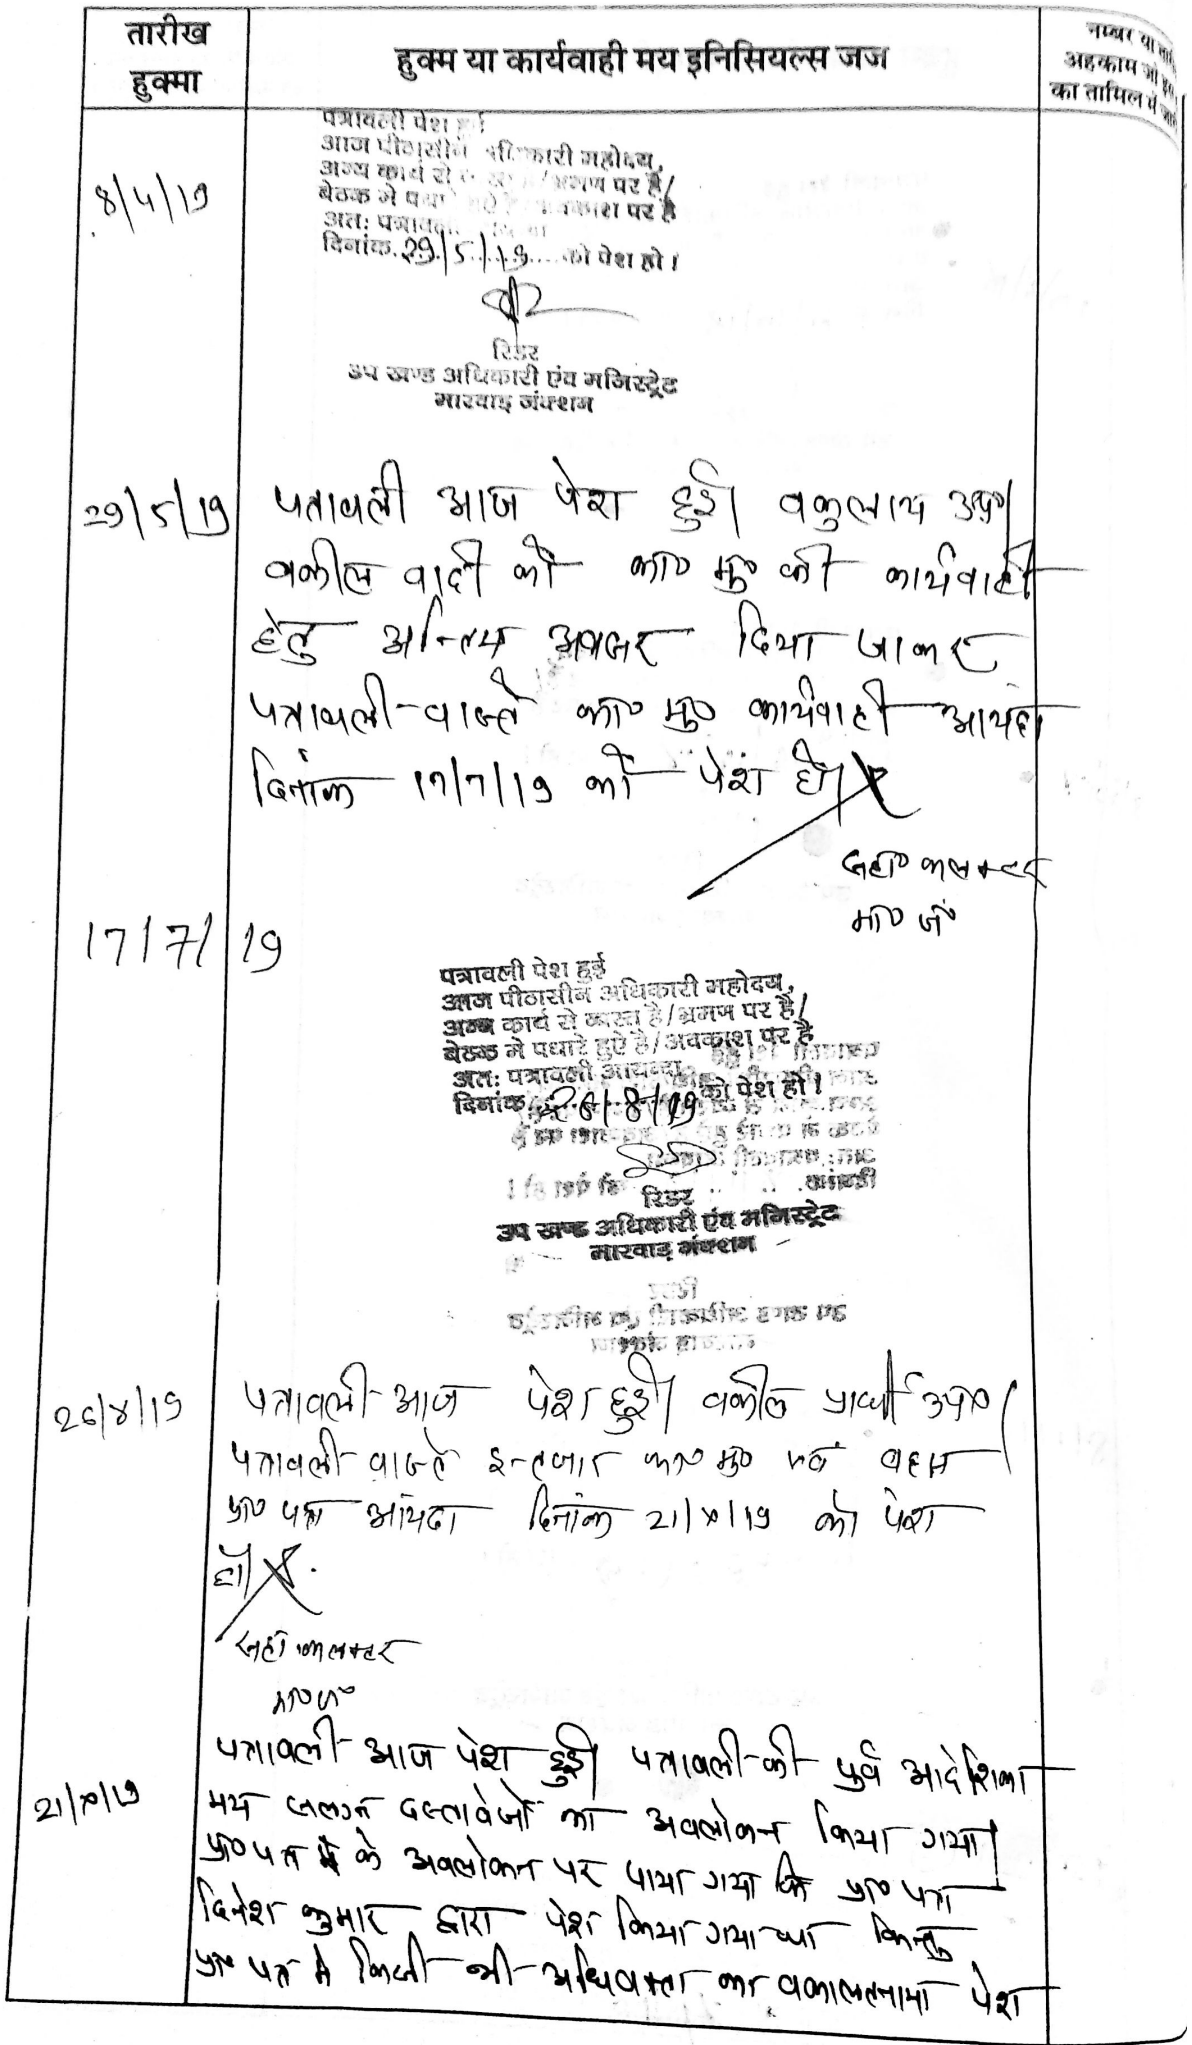 तारीख
हुक्मा
हुक्म या कार्यवाही मय इनिसियल्स जज
नम्बर या
अहकाम जो
का तामिल में
8/4/19
पत्रावली पेश हुई
आज पीठासीन अधिकारी महोदय,
अन्य कार्य से /भ्रमण पर है/
बेठक मे अवकाश पर है
अतः पत्रावली
दिनांक 29/5/19 को पेश हो।
रिडर
उप खण्ड अधिकारी एंव मजिस्ट्रेट
मारवाड़ जंक्शन
29/5/19
पत्रावली आज पेश हुई। वकुलाय उप०।
वकील वादी को का० मु० की कार्यवाही
हेतु अन्तिम अवसर दिया जाकर
पत्रावली वास्ते का० मु० कार्यवाही आयंदा
दिनांक 17/7/19 को पेश हो।
सहा० कलक्टर
मा० जं०
17/7/19
पत्रावली पेश हुई
आज पीठासीन अधिकारी महोदय,
अन्य कार्य से व्यस्त है/भ्रमण पर है/
बेठक मे पधारे हुऐ है/अवकाश पर है
अतः पत्रावली आयन्दा
दिनांक 26/8/19 को पेश हो।
रिडर
उप खण्ड अधिकारी एंव मजिस्ट्रेट
मारवाड़ जंक्शन
26/8/19
पत्रावली आज पेश हुई। वकील प्रार्थी उप०।
पत्रावली वास्ते इन्तजार का० मु० एवं बहस
प्रा० पत्र आयंदा दिनांक 21/10/19 को पेश
हो।
सहा कलक्टर
मा० जं०
21/10/19
पत्रावली आज पेश हुई। पत्रावली की पुर्व आदेशिका
मय सलग्न दस्तावेजों का अवलोकन किया गया।
प्रा० पत्र के अवलोकन पर पाया गया कि प्रा० पत्र
दिनेश कुमार द्वारा पेश किया गया था किन्तु
प्रा० पत्र मे किसी भी अधिवक्ता का वकालतनामा पेश